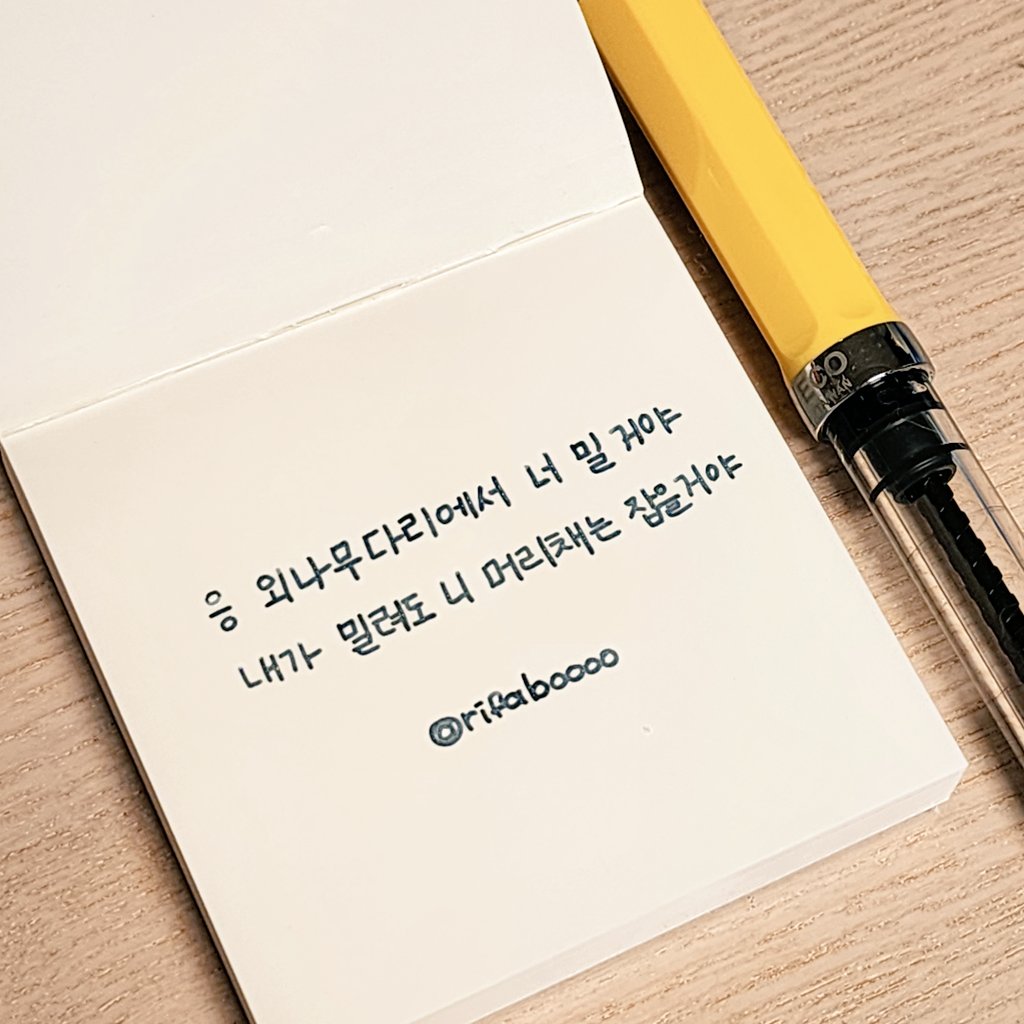 응 외나무다리에서 너 밀 거야
내가 밀려도 니 머리채는 잡을거야
@rifaboooo
ECO
TWSBI